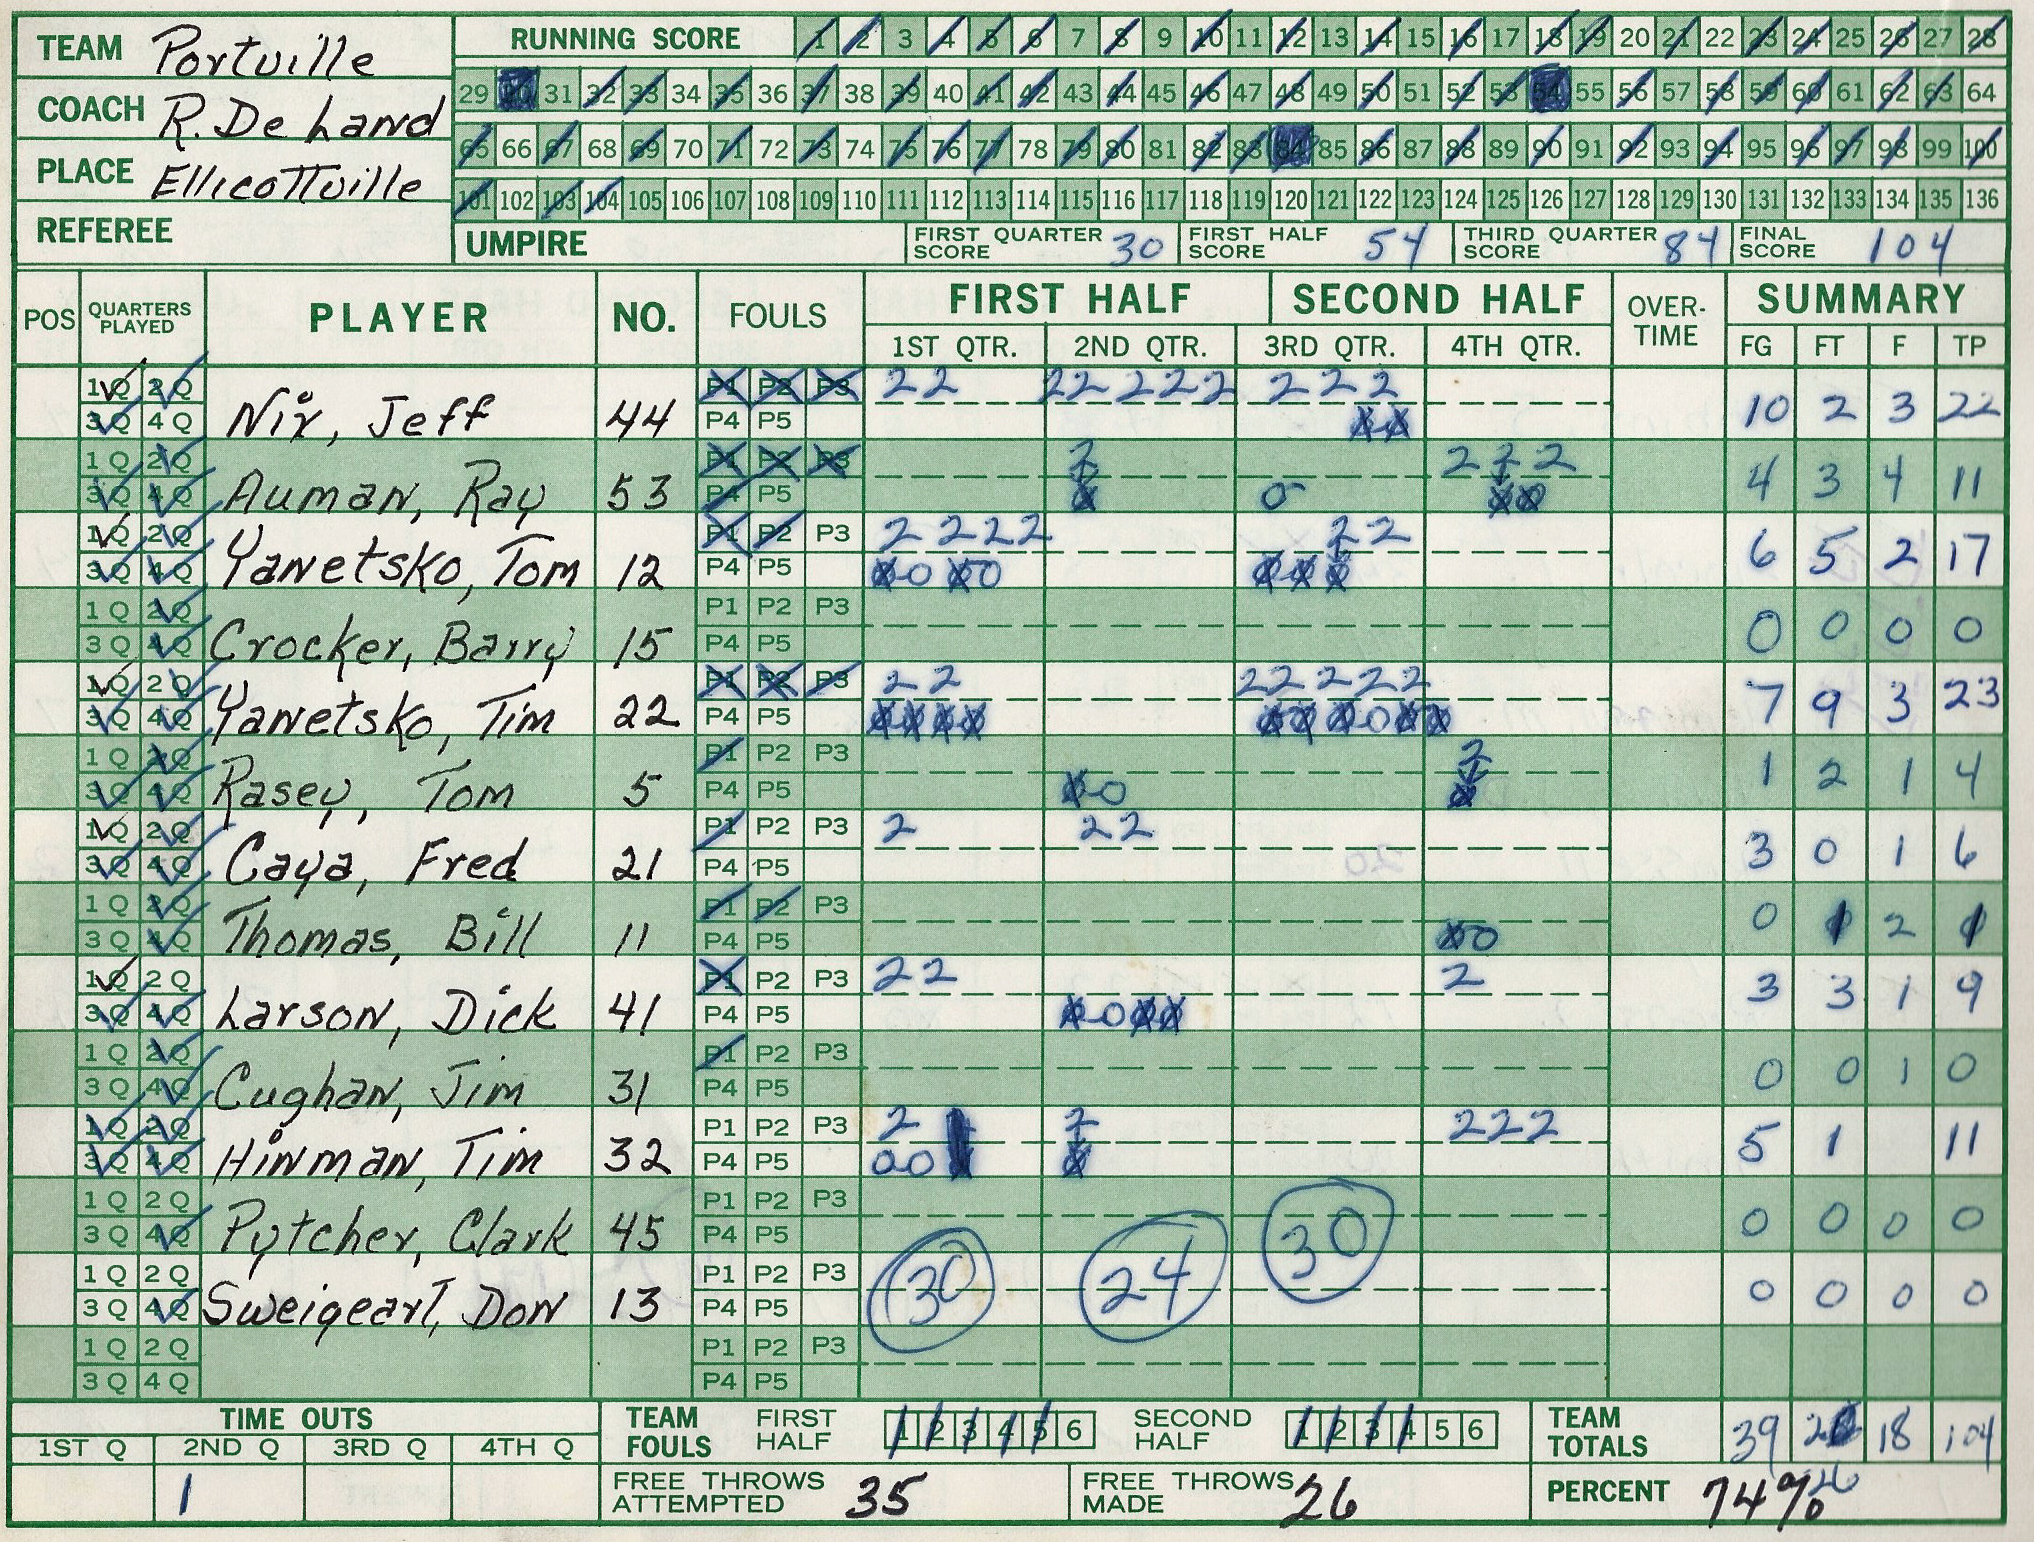 TEAM Portville
COACH R. De Land
PLACE Ellicottville
REFEREE
RUNNING SCORE 1 2 3 4 5 6 7 8 9 10 11 12 13 14 15 16 17 18 19 20 21 22 23 24 25 26 27 28
29 30 31 32 33 34 35 36 37 38 39 40 41 42 43 44 45 46 47 48 49 50 51 52 53 54 55 56 57 58 59 60 61 62 63 64
65 66 67 68 69 70 71 72 73 74 75 76 77 78 79 80 81 82 83 84 85 86 87 88 89 90 91 92 93 94 95 96 97 98 99 100
101 102 103 104 105 106 107 108 109 110 111 112 113 114 115 116 117 118 119 120 121 122 123 124 125 126 127 128 129 130 131 132 133 134 135 136
UMPIRE FIRST QUARTER SCORE 30 FIRST HALF SCORE 54 THIRD QUARTER SCORE 84 FINAL SCORE 104
POS QUARTERS PLAYED PLAYER NO. FOULS FIRST HALF SECOND HALF OVER-TIME SUMMARY
1ST QTR. 2ND QTR. 3RD QTR. 4TH QTR. FG FT F TP
1Q 2Q P1 P2 P3 2 2 2 2 2 2 2 2 2 2
3Q 4Q Nix, Jeff 44 P4 P5 10 2 3 22
1Q 2Q P1 P2 P3 2 2 2 2
3Q 4Q Auman, Ray 53 P4 P5 0 4 3 4 11
1Q 2Q P1 P2 P3 2 2 2 2 2 2
3Q 4Q Yanetsko, Tom 12 P4 P5 0 0 0 0 0 0 0 6 5 2 17
1Q 2Q P1 P2 P3
3Q 4Q Crocker, Barry 15 P4 P5 0 0 0 0
1Q 2Q P1 P2 P3 2 2 2 2 2 2 2
3Q 4Q Yanetsko, Tim 22 P4 P5 7 9 3 23
1Q 2Q P1 P2 P3 2
3Q 4Q Rasey, Tom 5 P4 P5 0 0 0 1 2 1 4
1Q 2Q P1 P2 P3 2 2 2
3Q 4Q Caya, Fred 21 P4 P5 3 0 1 6
1Q 2Q P1 P2 P3
3Q 4Q Thomas, Bill 11 P4 P5 0 0 0 1 2 1
1Q 2Q P1 P2 P3 2 2 2
3Q 4Q Larson, Dick 41 P4 P5 0 0 0 0 3 3 1 9
1Q 2Q P1 P2 P3
3Q 4Q Cughan, Jim 31 P4 P5 0 0 1 0
1Q 2Q P1 P2 P3 2 2 2 2 2
3Q 4Q Hinman, Tim 32 P4 P5 0 0 0 5 1 11
1Q 2Q P1 P2 P3
3Q 4Q Pytcher, Clark 45 P4 P5 30 0 0 0 0
1Q 2Q P1 P2 P3 30 24
3Q 4Q Sweigeart, Don 13 P4 P5 0 0 0 0
1Q 2Q P1 P2 P3
3Q 4Q P4 P5
TIME OUTS TEAM FOULS FIRST HALF 1 2 3 4 5 6 SECOND HALF 1 2 3 4 5 6 TEAM TOTALS 39 26 18 104
1ST Q 2ND Q 3RD Q 4TH Q
1 FREE THROWS ATTEMPTED 35 FREE THROWS MADE 26 PERCENT 74%